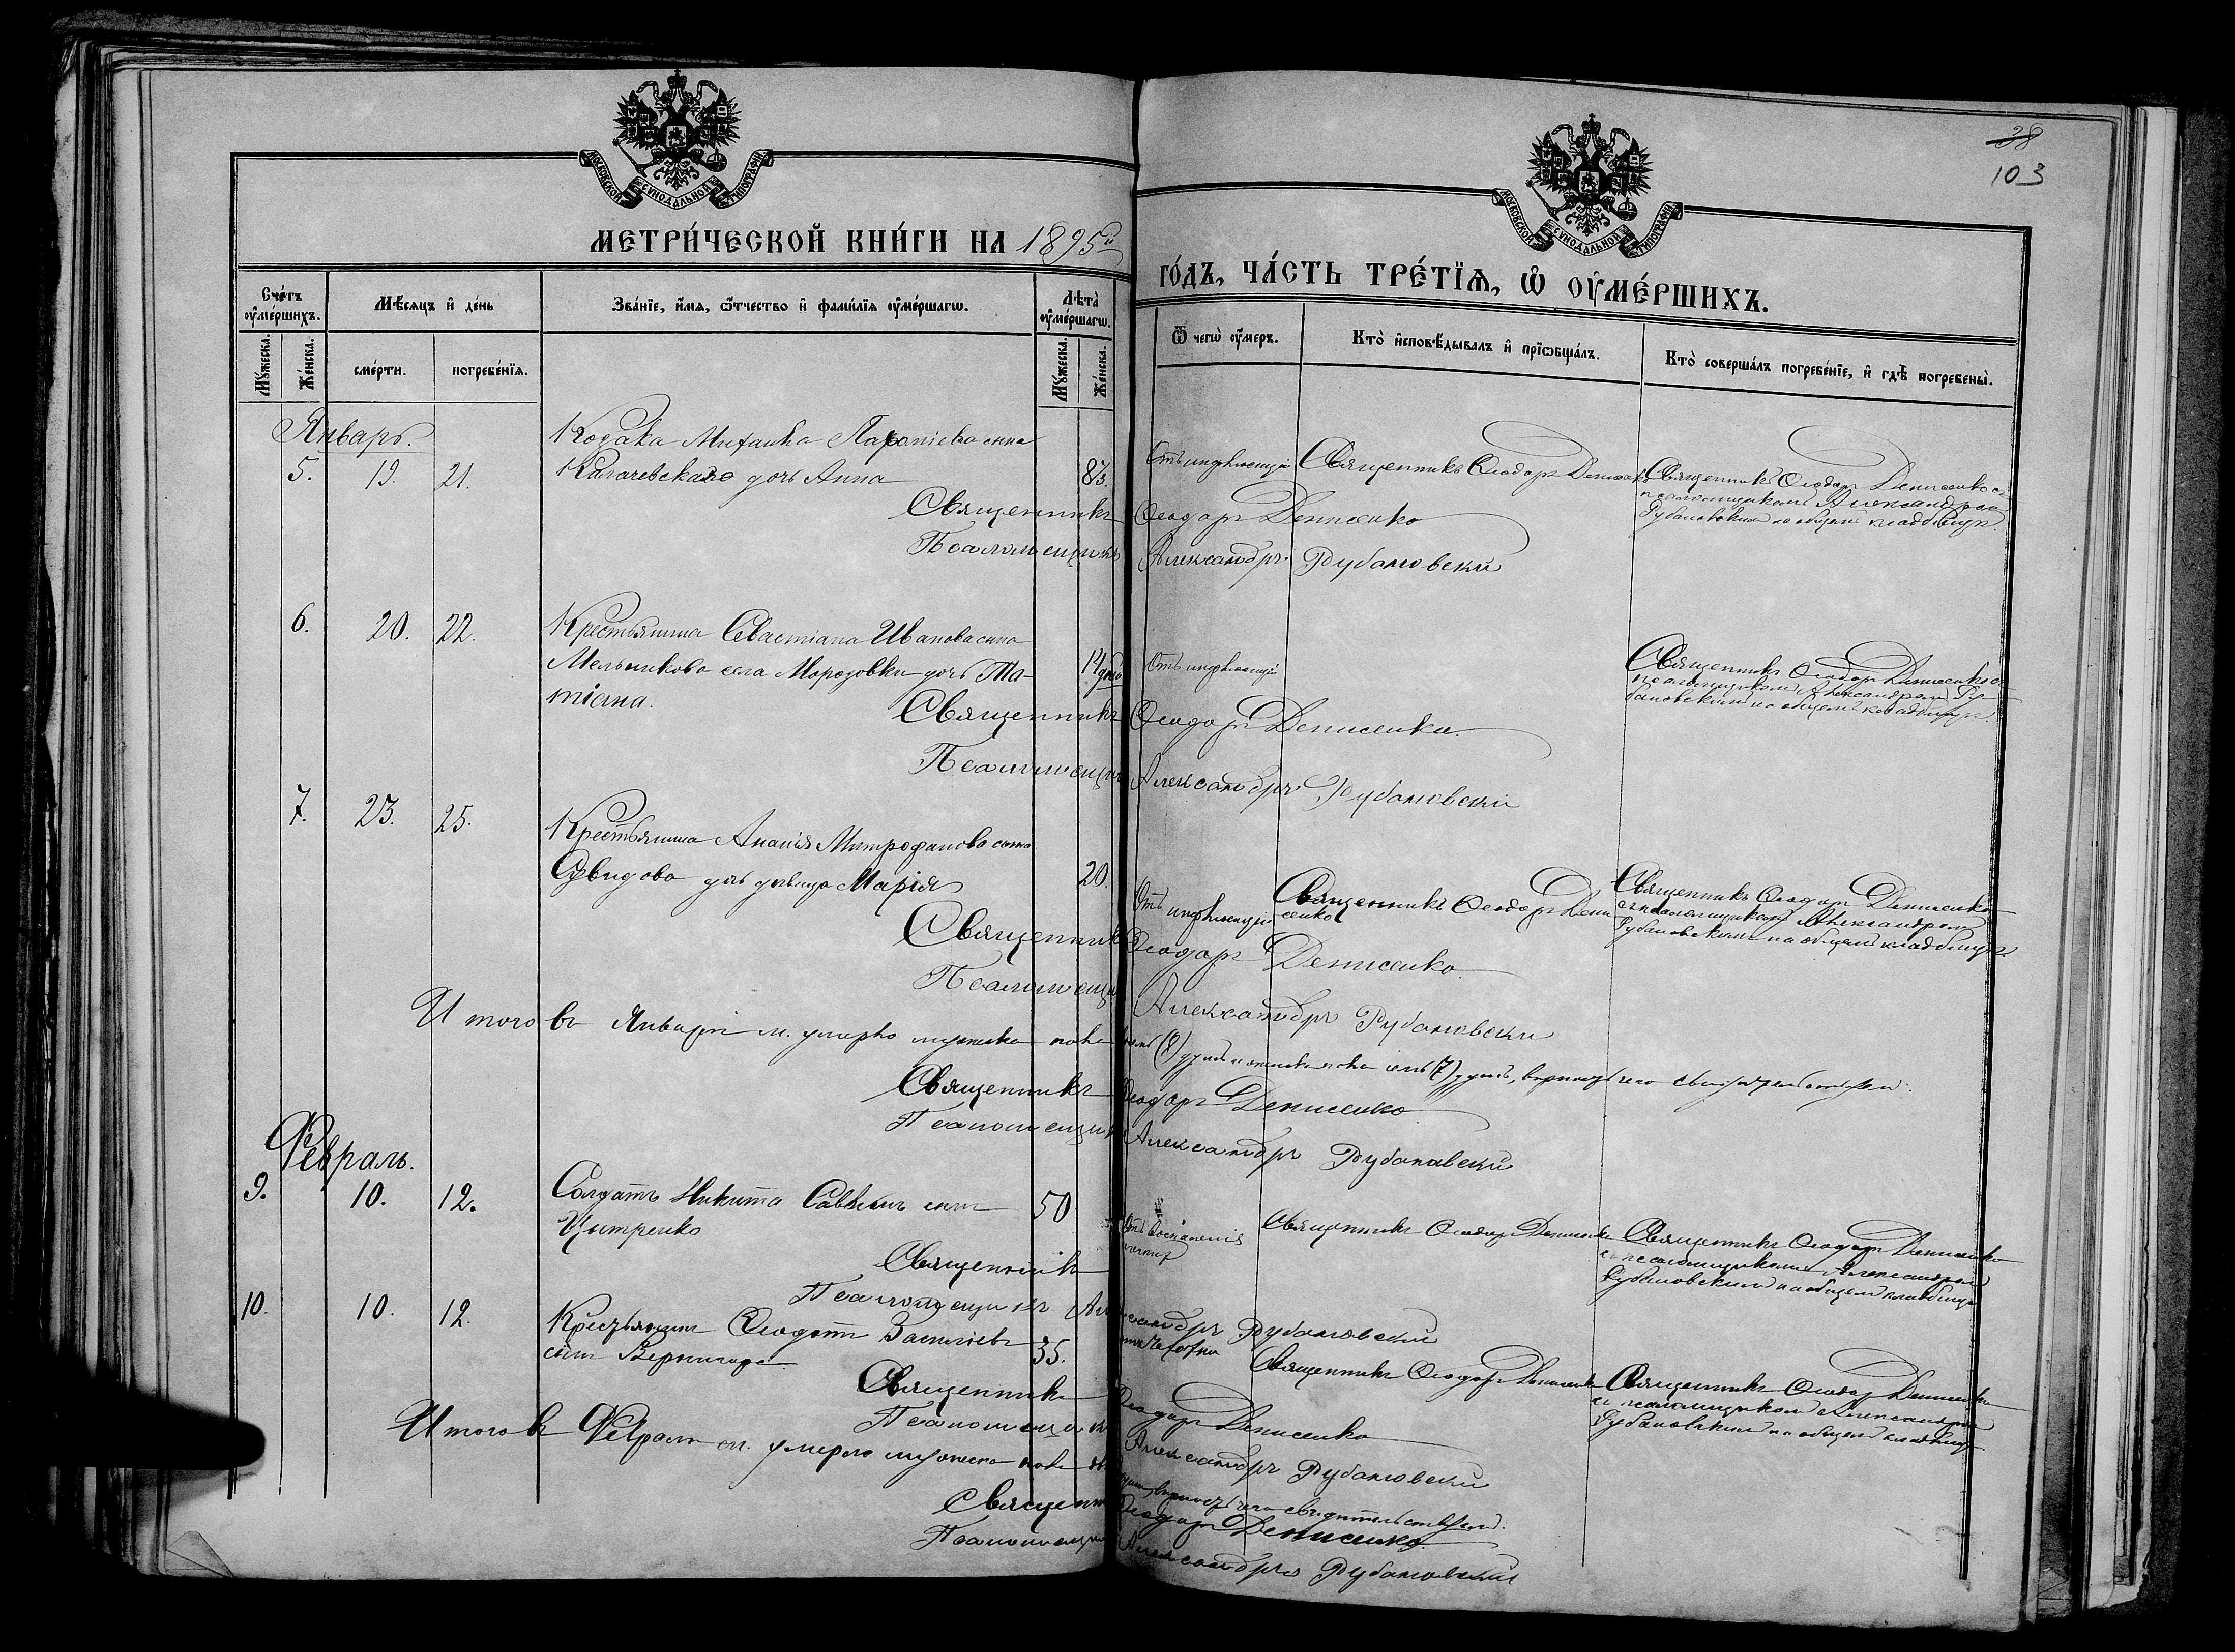 38
103
МОСКОВСКОЙ СУНОДАЛЬНОЙ ТИПОГРАФИИ
МОСКОВСКОЙ СУНОДАЛЬНОЙ ТИПОГРАФИИ
МЕТРИ́ЧЕСКОЙ КНИ́ГИ НА 1895й
ГО́ДЪ, ЧА́СТЬ ТРЕ́ТЇѦ, Ѽ ОУ҆МЕ́РШИХЪ.
Сче́тъ оу҆ме́ршихъ.
Мѣ́сяцъ и҆ де́нь
Зва́нїе, и҆́мѧ, ѻ҆́тчество и҆ фами́лїѧ оу҆ме́ршагѡ.
Лѣта̀ оу҆ме́ршагѡ.
Ѿ чегѡ̀ оу҆́меръ.
Кто̀ и҆сповѣ́дывалъ и҆ прїѡбща́лъ.
Кто̀ соверша́лъ погребе́нїе, и҆ гдѣ̀ погребены̀.
Мꙋ́жеска.
Же́нска.
сме́рти.
погребе́нїѧ.
Мꙋ́жеска.
Же́нска.
Январь.
Козака Михаила сына
5. 19. 21. дочь Анна 83. Священникъ Ѳеодоръ Денисенко
Священникъ Ѳеодоръ Денисенко съ
псаломщикомъ Александромъ
Рубановскимъ на общемъ кладбищѣ.
Священникъ Ѳеодоръ Денисенко
Псаломщикъ Александръ Рубановскій
6. 20. 22. Крестьянина Севастіана Иванова сына
Мельникова села Морозовки дочь Та- 14 дней
тіана.
Священникъ Ѳеодоръ Денисенко съ
псаломщикомъ Александромъ Ру-
бановскимъ на общемъ кладбищѣ.
Священникъ Ѳеодоръ Денисенко.
Псаломщикъ Александръ Рубановскій
7. 23. 25. Крестьянина Ананія Митрофанова сына
дочь дѣвица Марія 20.
Священникъ Ѳеодоръ Дени-
сенко
Священникъ Ѳеодоръ Денисенко
съ псаломщикомъ Александромъ
Рубановскимъ на общемъ кладбищѣ
Священникъ Ѳеодоръ Денисенко.
Псаломщикъ Александръ Рубановскій
Итого въ Январѣ м. умерло мужска пола (8) душъ и женска пола семь (7) душъ, вѣрность чего свидѣтельствуемъ.
Священникъ Ѳеодоръ Денисенко
Псаломщикъ Александръ Рубановскій
Февраль.
9. 10. 12. Солдатъ Никита Саввинъ сынъ 50 Отъ воспаленія
Священникъ Ѳеодоръ Денисенко
Священникъ Ѳеодоръ Денисенко
съ псаломщикомъ Александромъ
Рубановскимъ на общемъ кладбищѣ
Священникъ
Псаломщикъ Александръ Рубановскій
10. 10. 12. Крестьянинъ Ѳеодотъ Васильевъ 35. Отъ чахотки
сынъ
Священникъ Ѳеодоръ Денисенко
Священникъ Ѳеодоръ Денисенко
съ псаломщикомъ Александромъ
Рубановскимъ на общемъ кладбищѣ
Священникъ Ѳеодоръ Денисенко
Псаломщикъ Александръ Рубановскій
Итого въ Февралѣ м. умерло мужска пола душъ, вѣрность чего свидѣтельствуемъ.
Священникъ Ѳеодоръ Денисенко
Псаломщикъ Александръ Рубановскій